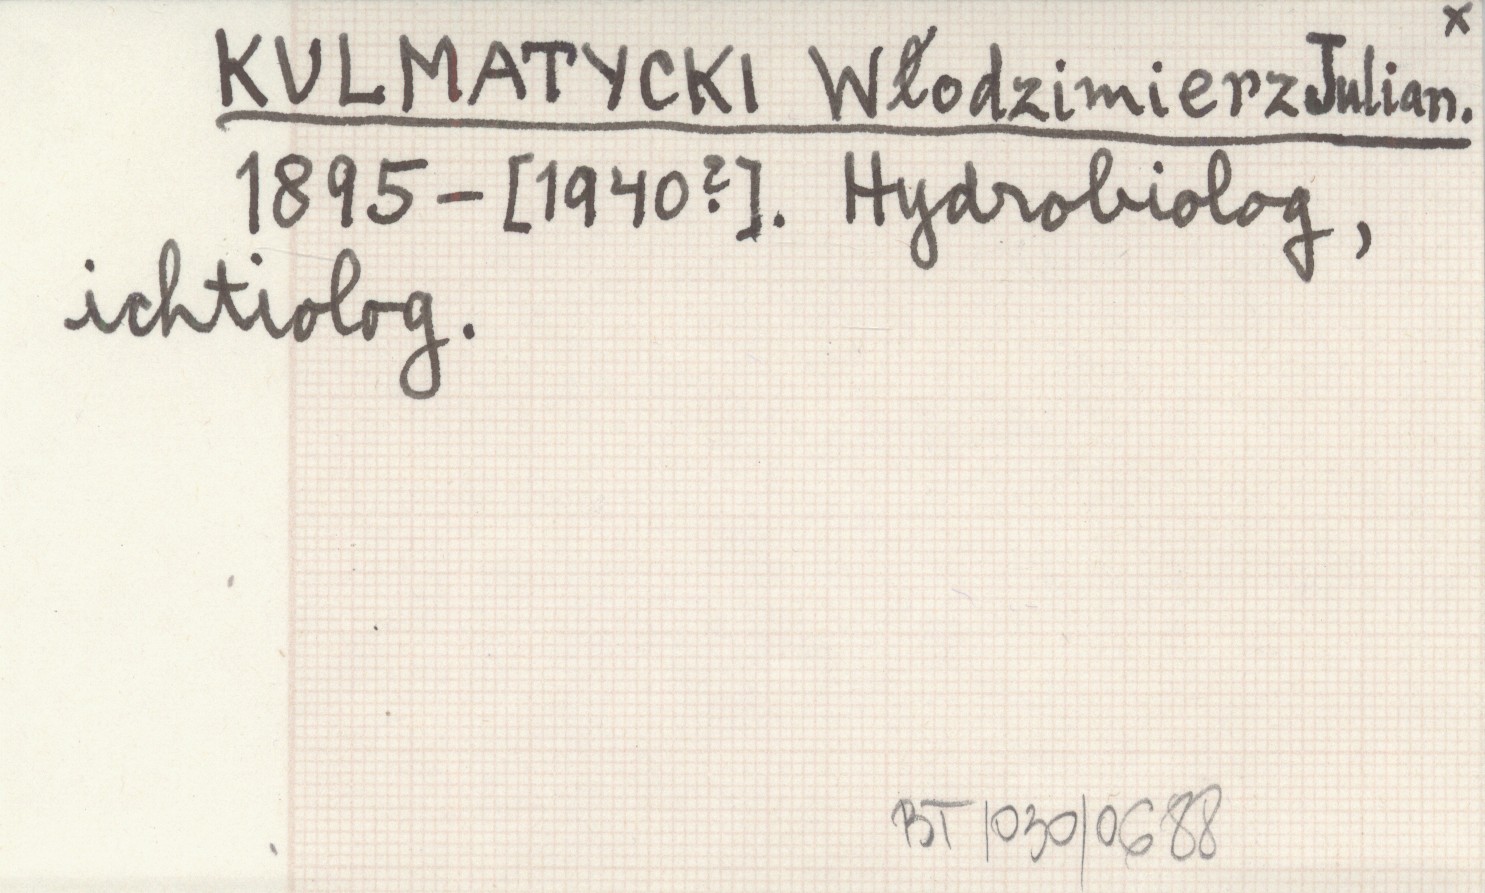 x
KULMATYCKI Włodzimierz Julian.
1895 - [1940?]. Hydrobiolog,
ichtiolog.
BT/030/0688